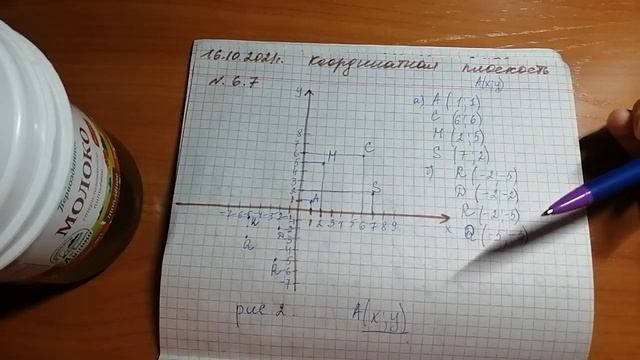 16.10.2021г. Координатная плоскость
N. 6.7
A(x;y)
а) A (1;1)
C (6;6)
M (2;5)
S (7;2)
б) R (-2;-5)
D (-2;-2)
R (-2;-5)
Q (-5;-3)
y
8
7
6
5
4
3
2
1
C
M
A
S
-7 -6 -5 -4 -3 -2 -1
1 2 3 4 5 6 7 8 9
x
D
Q
R
-4
-5
-6
-7
рис 2.
A(x;y)
МОЛОКО